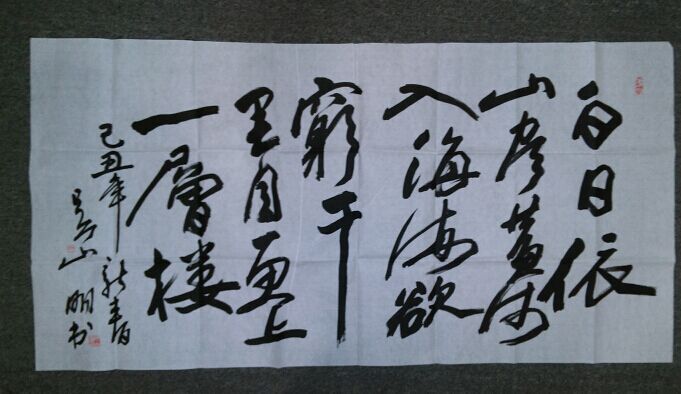 白日依
山尽黄河
入海流欲
窮千
里目更上
一層楼
己丑年新春
山明书